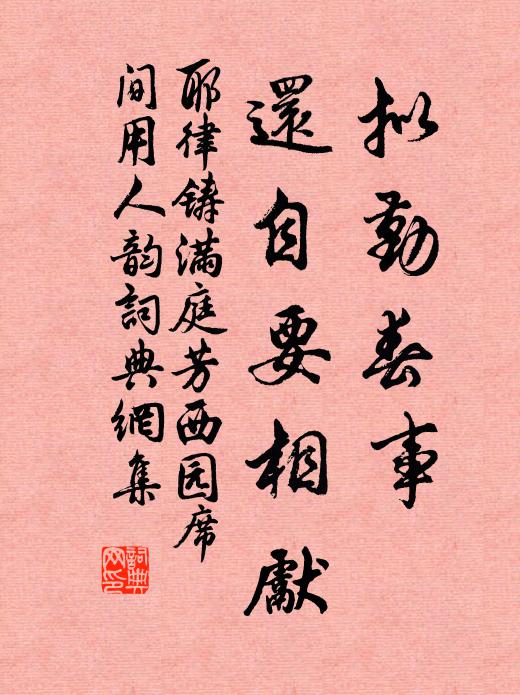 拟勤春事
還自要相獻
耶律鑄滿庭芳西园席
间用人韵詞典網集
詞典网印